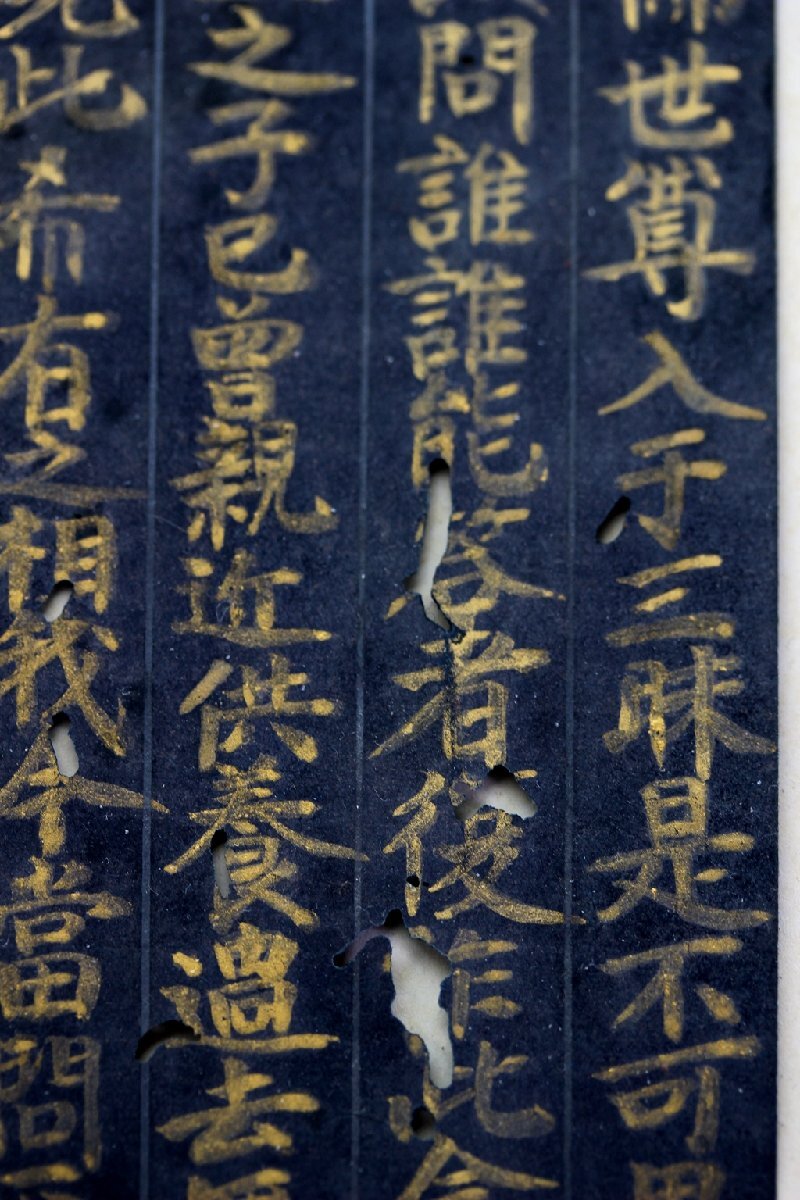 世尊入于三昧是不可
問誰誰能答者復作此念
之子已曾親近供養過去
見此希有之相我今當問